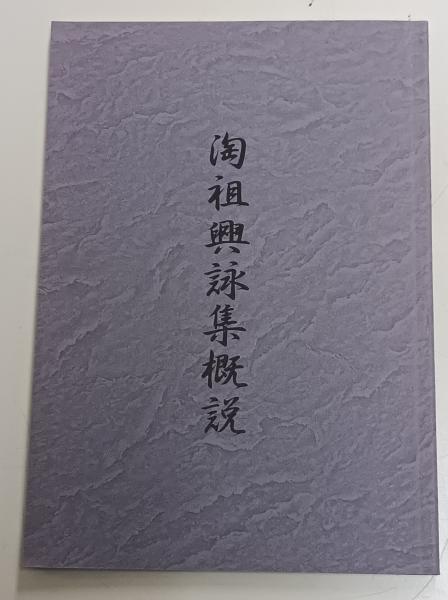 淘祖興詠集概説